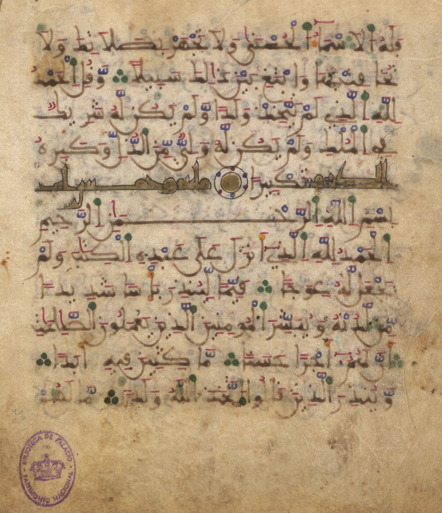 فله الاسماء الحسنى ولا تجهر بصلاتك ولا
تخافت بها وابتغ بين ذلك سبيلا وقل الحمد
لله الذي لم يتخذ ولدا ولم يكن له شريك
في الملك ولم يكن له ولي من الذل وكبره
تكبيرا
بسم الله الرحمن الرحيم
الحمد لله الذي انزل على عبده الكتب ولم
يجعل له عوجا قيما لينذر باسا شديدا
من لدنه ويبشر المومنين الذين يعملون الصلحت
ان لهم اجرا حسنا مكثين فيه ابدا
وينذر الذين قالوا اتخذ الله ولدا ما لهم
BIBLIOTECA DE PALACIO